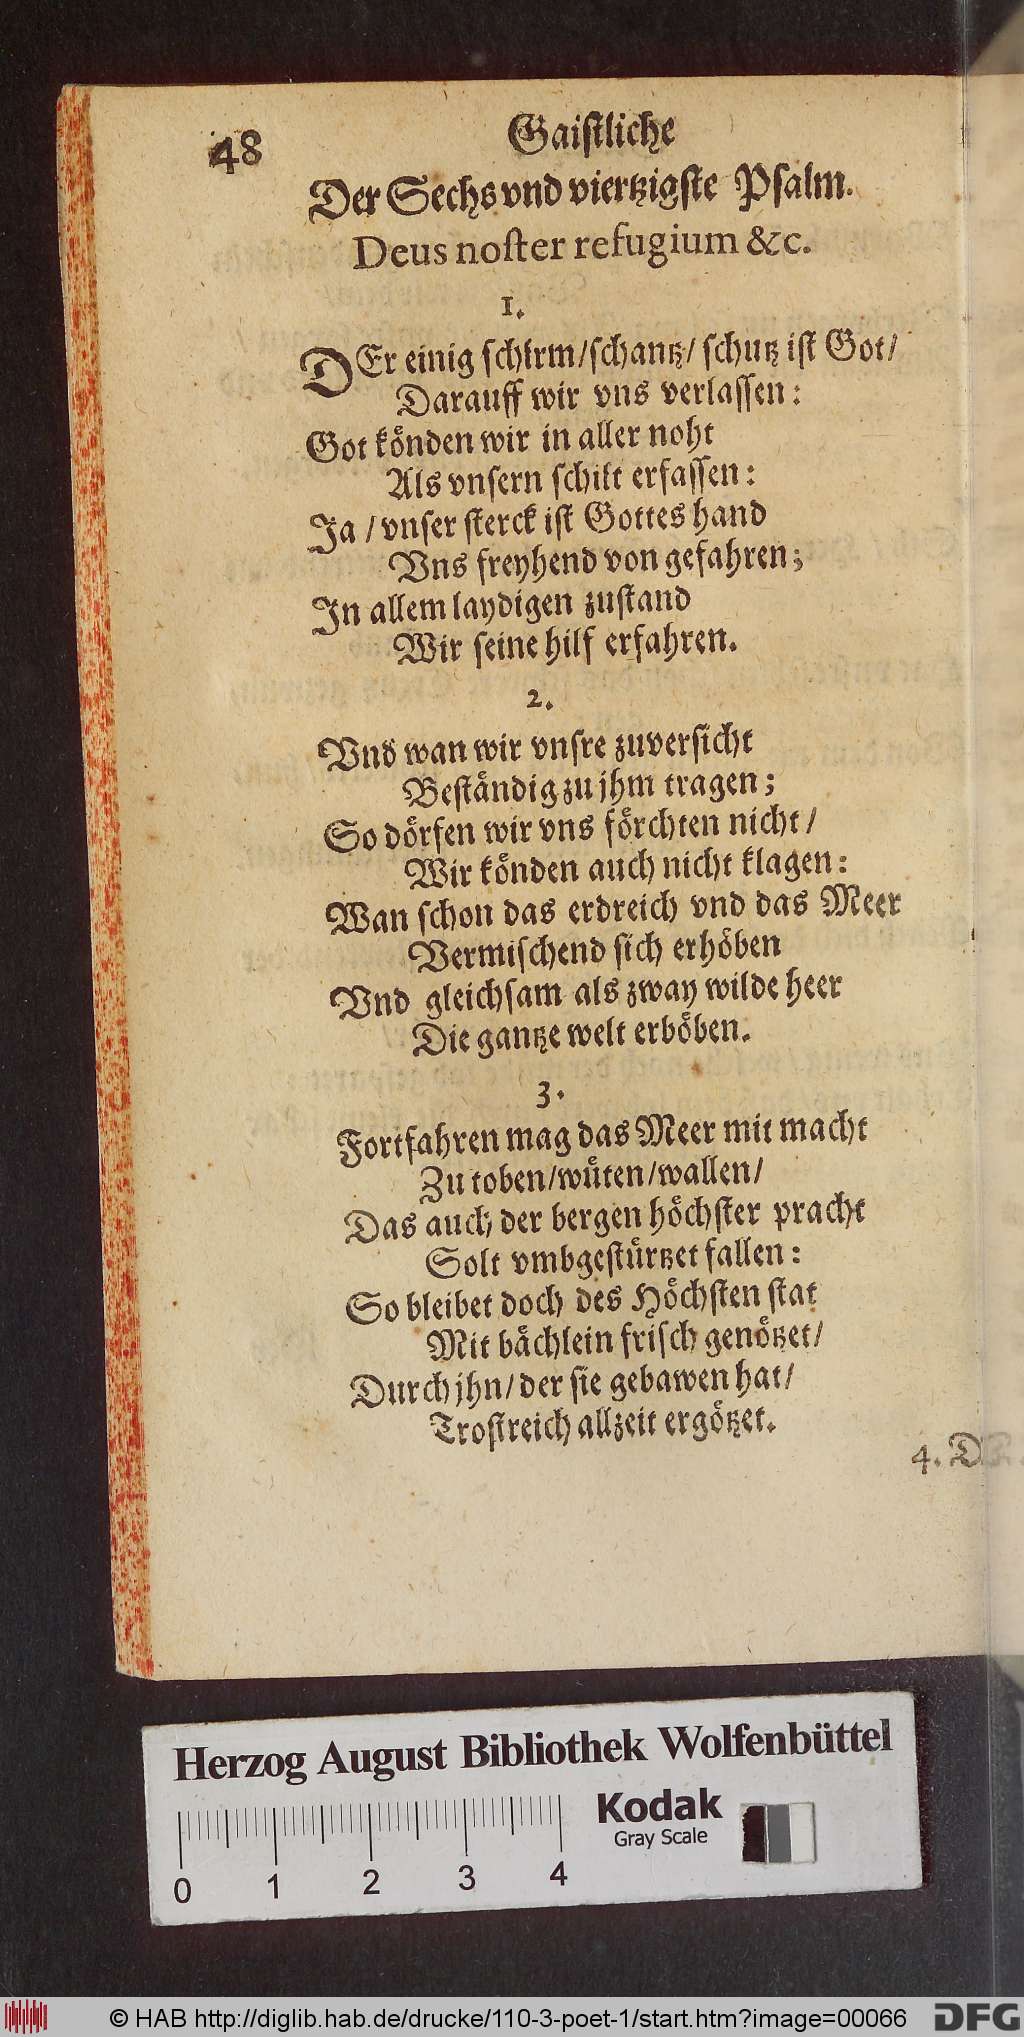 48
Gaistliche
Der Sechs vnd viertzigste Psalm.
Deus noster refugium &c.
1.
DEr einig schirm/schantz/ schutz ist Got/
Darauff wir vns verlassen:
Got könden wir in aller noht
Als vnsern schilt erfassen:
Ja / vnser sterck ist Gottes hand
Vns freyhend von gefahren;
In allem laydigen zustand
Wir seine hilf erfahren.
2.
Vnd wan wir vnsre zuversicht
Beständig zu jhm tragen;
So dörfen wir vns förchten nicht/
Wir könden auch nicht klagen:
Wan schon das erdreich vnd das Meer
Vermischend sich erhöben
Vnd gleichsam als zway wilde heer
Die gantze welt erböben.
3.
Fortfahren mag das Meer mit macht
Zu toben/wüten/wallen/
Das auch der bergen höchster pracht
Solt vmbgestürtzet fallen:
So bleibet doch des Höchsten stat
Mit bächlein frisch genötzet/
Durch jhn/ der sie gebawen hat/
Trostreich allzeit ergötzet.
4. D
Herzog August Bibliothek Wolfenbüttel
Kodak
Gray Scale
0 1 2 3 4
© HAB http://diglib.hab.de/drucke/110-3-poet-1/start.htm?image=00066
DFG